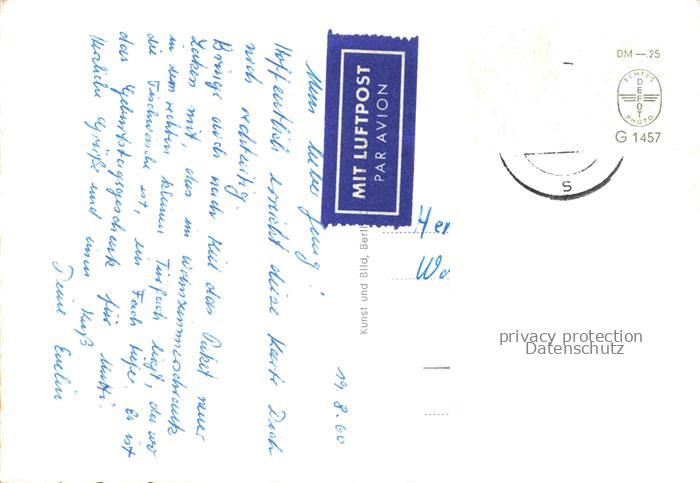 19.8.60
Mein lieber Jung!
Hoffentlich erreicht diese Karte Dich
noch rechtzeitig.
Bringe auch nach Kiel das Paket neuer
Laken mit, das im Wohnzimmerschrank
in dem rechten kleinen Türfach liegt, da wo
die Tischwäsche ist, ein Fach tiefer. Es ist
das Geburtstagsgeschenk für Mutti.
Herzliche Grüße und einen Kuß
Deine Evelin
MIT LUFTPOST
PAR AVION
Kunst und Bild, Berlin
Her
Wo
DM —.25
ECHTES
DEFOT
PHOTO
G 1457
S
privacy protection
Datenschutz